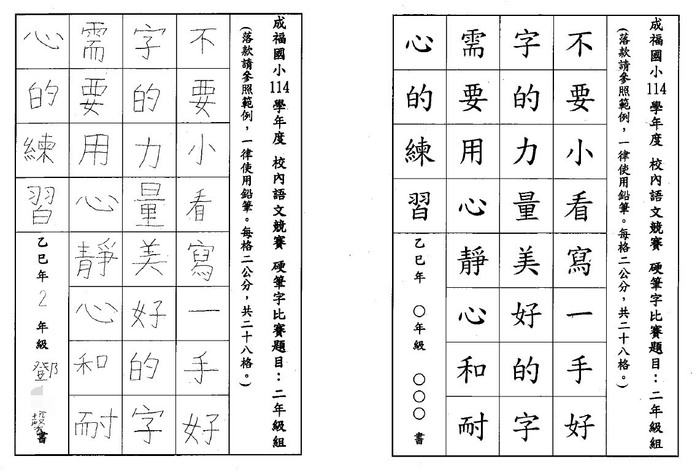 成福國小114學年度 校內語文競賽 硬筆字比賽題目：二年級組
(落款請參照範例，一律使用鉛筆。每格二公分，共二十八格。)
不要小看寫一手好
字的力量美好的字
需要用心靜心和耐
心的練習
乙巳年 2 年級 鄧 書
成福國小114學年度 校內語文競賽 硬筆字比賽題目：二年級組
(落款請參照範例，一律使用鉛筆。每格二公分，共二十八格。)
不要小看寫一手好
字的力量美好的字
需要用心靜心和耐
心的練習
乙巳年 ○年級 ○○○ 書